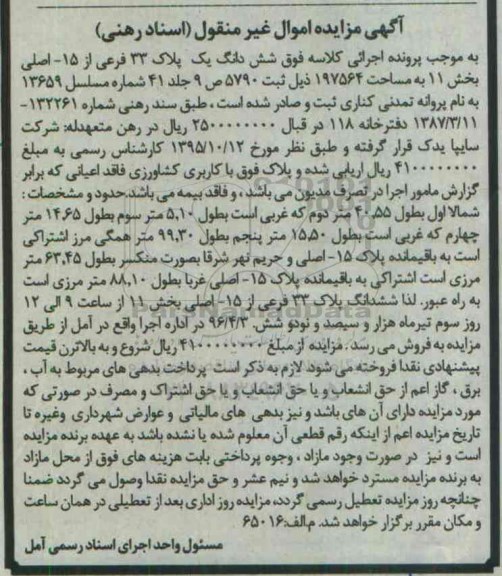 آگهی مزایده اموال غیر منقول (اسناد رهنی)
به موجب پرونده اجرائی کلاسه فوق شش دانگ یک پلاک ۳۳ فرعی از ۱۵- اصلی
بخش ۱۱ به مساحت ۱۹۷۵۶۴ ذیل ثبت ۵۷۹۰ ص ۹ جلد ۴۱ شماره مسلسل ۱۳۶۵۹
به نام پروانه تمدنی کناری ثبت و صادر شده است ، طبق سند رهنی شماره ۱۳۲۲۶۱-
۱۳۸۷/۳/۱۱ دفترخانه ۱۱۸ در قبال ۲۵۰۰۰۰۰۰۰۰ ریال در رهن متعهدله: شرکت
سایپا یدک قرار گرفته و طبق نظر مورخ ۱۳۹۵/۱۰/۱۲ کارشناس رسمی به مبلغ
۴۱۰۰۰۰۰۰۰۰ ریال ارزیابی شده و پلاک فوق با کاربری کشاورزی فاقد اعیانی که برابر
گزارش مامور اجرا در تصرف مدیون می باشد ، و فاقد بیمه می باشد.حدود و مشخصات :
شمالا اول بطول ۲۰،۵۵ متر دوم که غربی است بطول ۵،۱۰ متر سوم بطول ۱۴،۶۵ متر
چهارم که غربی است بطول ۱۵،۵۰ متر پنجم بطول ۹۹،۳۰ متر همگی مرز اشتراکی
است به باقیمانده پلاک ۱۵- اصلی و حریم نهر شرقا بصورت منکسر بطول ۶۳،۴۵ متر
مرزی است اشتراکی به باقیمانده پلاک ۱۵- اصلی غربا بطول ۸۸،۱۰ متر مرزی است
به راه عبور. لذا ششدانگ پلاک ۳۳ فرعی از ۱۵- اصلی بخش ۱۱ از ساعت ۹ الی ۱۲
روز سوم تیرماه هزار و سیصد و نودو شش. ۹۶/۴/۳ در اداره اجرا واقع در آمل از طریق
مزایده به فروش می رسد . مزایده از مبلغ ۴۱۰۰۰۰۰۰۰۰ ریال شروع و به بالاترن قیمت
پیشنهادی نقدا فروخته می شود لازم به ذکر است پرداخت بدهی های مربوط به آب ،
برق ، گاز اعم از حق انشعاب و یا حق انشعاب و یا حق اشتراک و مصرف در صورتی که
مورد مزایده دارای آن های باشد و نیز بدهی های مالیاتی و عوارض شهرداری وغیره تا
تاریخ مزایده اعم از اینکه رقم قطعی آن معلوم شده یا نشده باشد به عهده برنده مزایده
است و نیز در صورت وجود مازاد ، وجوه پرداختی بابت هزینه های فوق از محل مازاد
به برنده مزایده مسترد خواهد شد و نیم عشر و حق مزایده نقدا وصول می گردد ضمنا
چنانچه روز مزایده تعطیل رسمی گردد، مزایده روز اداری بعد از تعطیلی در همان ساعت
و مکان مقرر برگزار خواهد شد. م‌الف:۶۵۰۱۶
مسئول واحد اجرای اسناد رسمی آمل